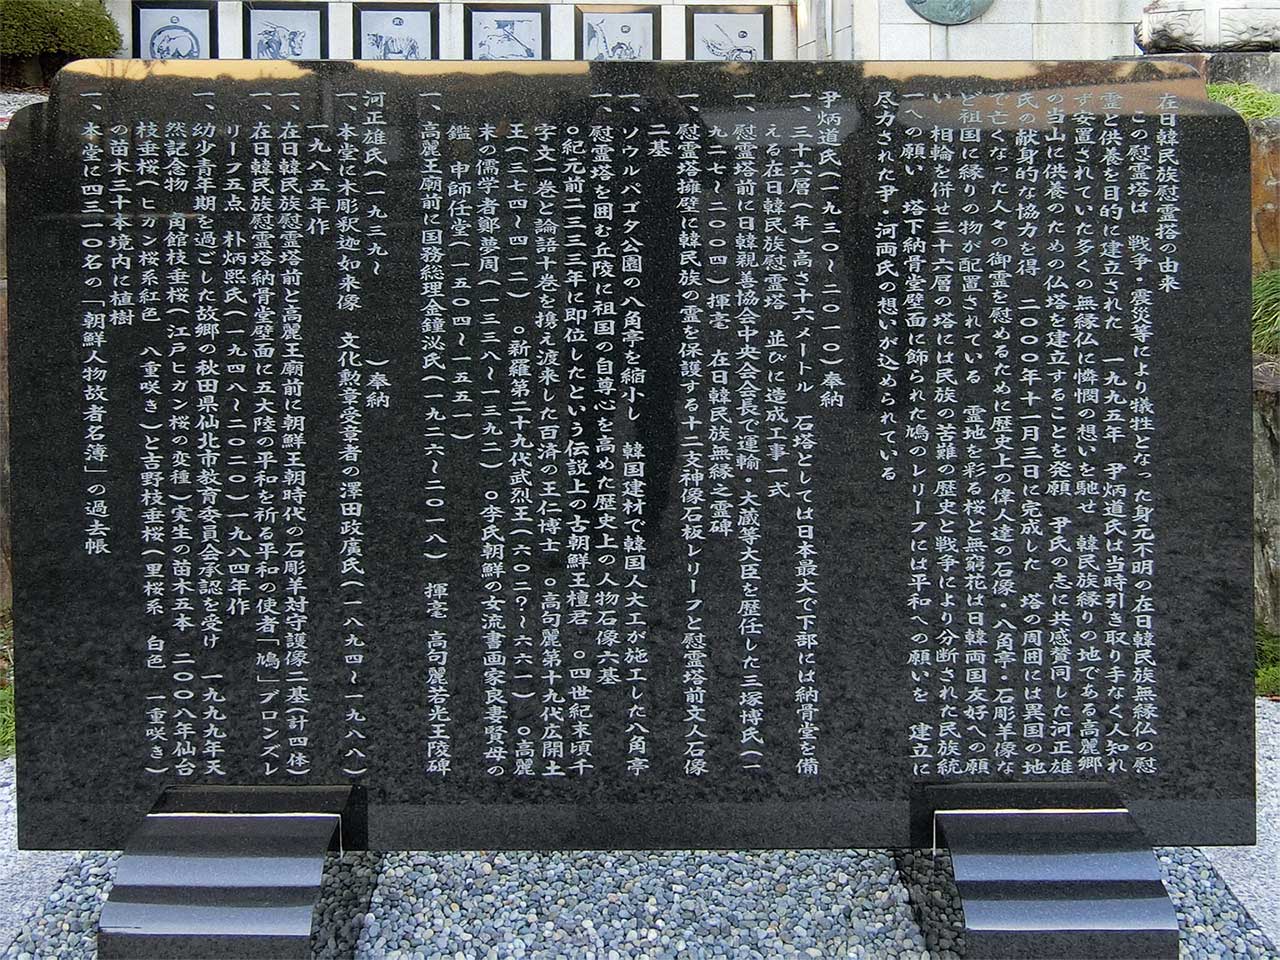 在日韓民族慰霊塔の由来
この慰霊塔は 戦争・震災等により犠牲となった身元不明の在日韓民族無縁仏の慰
霊と供養を目的に建立された 一九九五年 尹炳道氏は当時引き取り手なく人知れ
ず安置されていた多くの無縁仏に憐憫の想いを馳せ 韓民族縁りの地である高麗郷
の当山に供養のための仏塔を建立することを発願 尹氏の志に共感賛同した河正雄
氏の献身的な協力を得 二〇〇〇年十一月三日に完成した 塔の周囲には異国の地
で亡くなった人々の御霊を慰めるために歴史上の偉人達の石像・八角亭・石彫羊像な
ど祖国に縁りの物が配置されている 霊地を彩る桜と無窮花は日韓両国友好への願
い 相輪を併せ三十六層の塔には民族の苦難の歴史と戦争により分断された民族統
一への願い 塔下納骨堂壁面に飾られた鳩のレリーフには平和への願いを 建立に
尽力された尹・河両氏の想いが込められている
尹炳道氏(一九三〇〜二〇一〇)奉納
一、三十六層(年)高さ十六メートル 石塔としては日本最大で下部には納骨堂を備
える在日韓民族慰霊塔 並びに造成工事一式
一、慰霊塔前に日韓親善協会中央会会長で運輸・大蔵等大臣を歴任した三塚博氏(一
九二七〜二〇〇四)揮毫 在日韓民族無縁之霊碑
一、慰霊塔擁壁に韓民族の霊を保護する十二支神像石板レリーフと慰霊塔前文人石像
二基
一、ソウルパゴタ公園の八角亭を縮小し 韓国建材で韓国人大工が施工した八角亭
一、慰霊塔を囲む丘陵に祖国の自尊心を高めた歴史上の人物石像六基
〇紀元前二三三三年に即位したという伝説上の古朝鮮王檀君 〇四世紀末頃千
字文一巻と論語十巻を携え渡来した百済の王仁博士 〇高句麗第十九代広開土
王(三七四〜四一二) 〇新羅第二十九代武烈王(六〇二?〜六六一) 〇高麗
末の儒学者鄭夢周(一三三八〜一三九二) 〇李氏朝鮮の女流書画家良妻賢母の
鑑 申師任堂(一五〇四〜一五五一)
一、高麗王廟前に国務総理金鐘泌氏(一九二六〜二〇一八) 揮毫 高句麗若光王陵碑
河正雄氏(一九三九〜 )奉納
一、本堂に木彫釈迦如来像 文化勲章受章者の澤田政廣氏(一八九四〜一九八八)
一九八五年作
一、在日韓民族慰霊塔前と高麗王廟前に朝鮮王朝時代の石彫羊対守護像二基(計四体)
一、在日韓民族慰霊塔納骨堂壁面に五大陸の平和を祈る平和の使者「鳩」ブロンズレ
リーフ五点 朴炳熙氏(一九四八〜二〇二〇)一九八四年作
一、幼少青年期を過ごした故郷の秋田県仙北市教育委員会承認を受け 一九九九年天
然記念物 角館枝垂桜(江戸ヒガン桜の変種)実生の苗木五本 二〇〇八年仙台
枝垂桜(ヒガン桜系紅色 八重咲き)と吉野枝垂桜(里桜系 白色 一重咲き)
の苗木三十本境内に植樹
一、本堂に四三一〇名の「朝鮮人物故者名簿」の過去帳